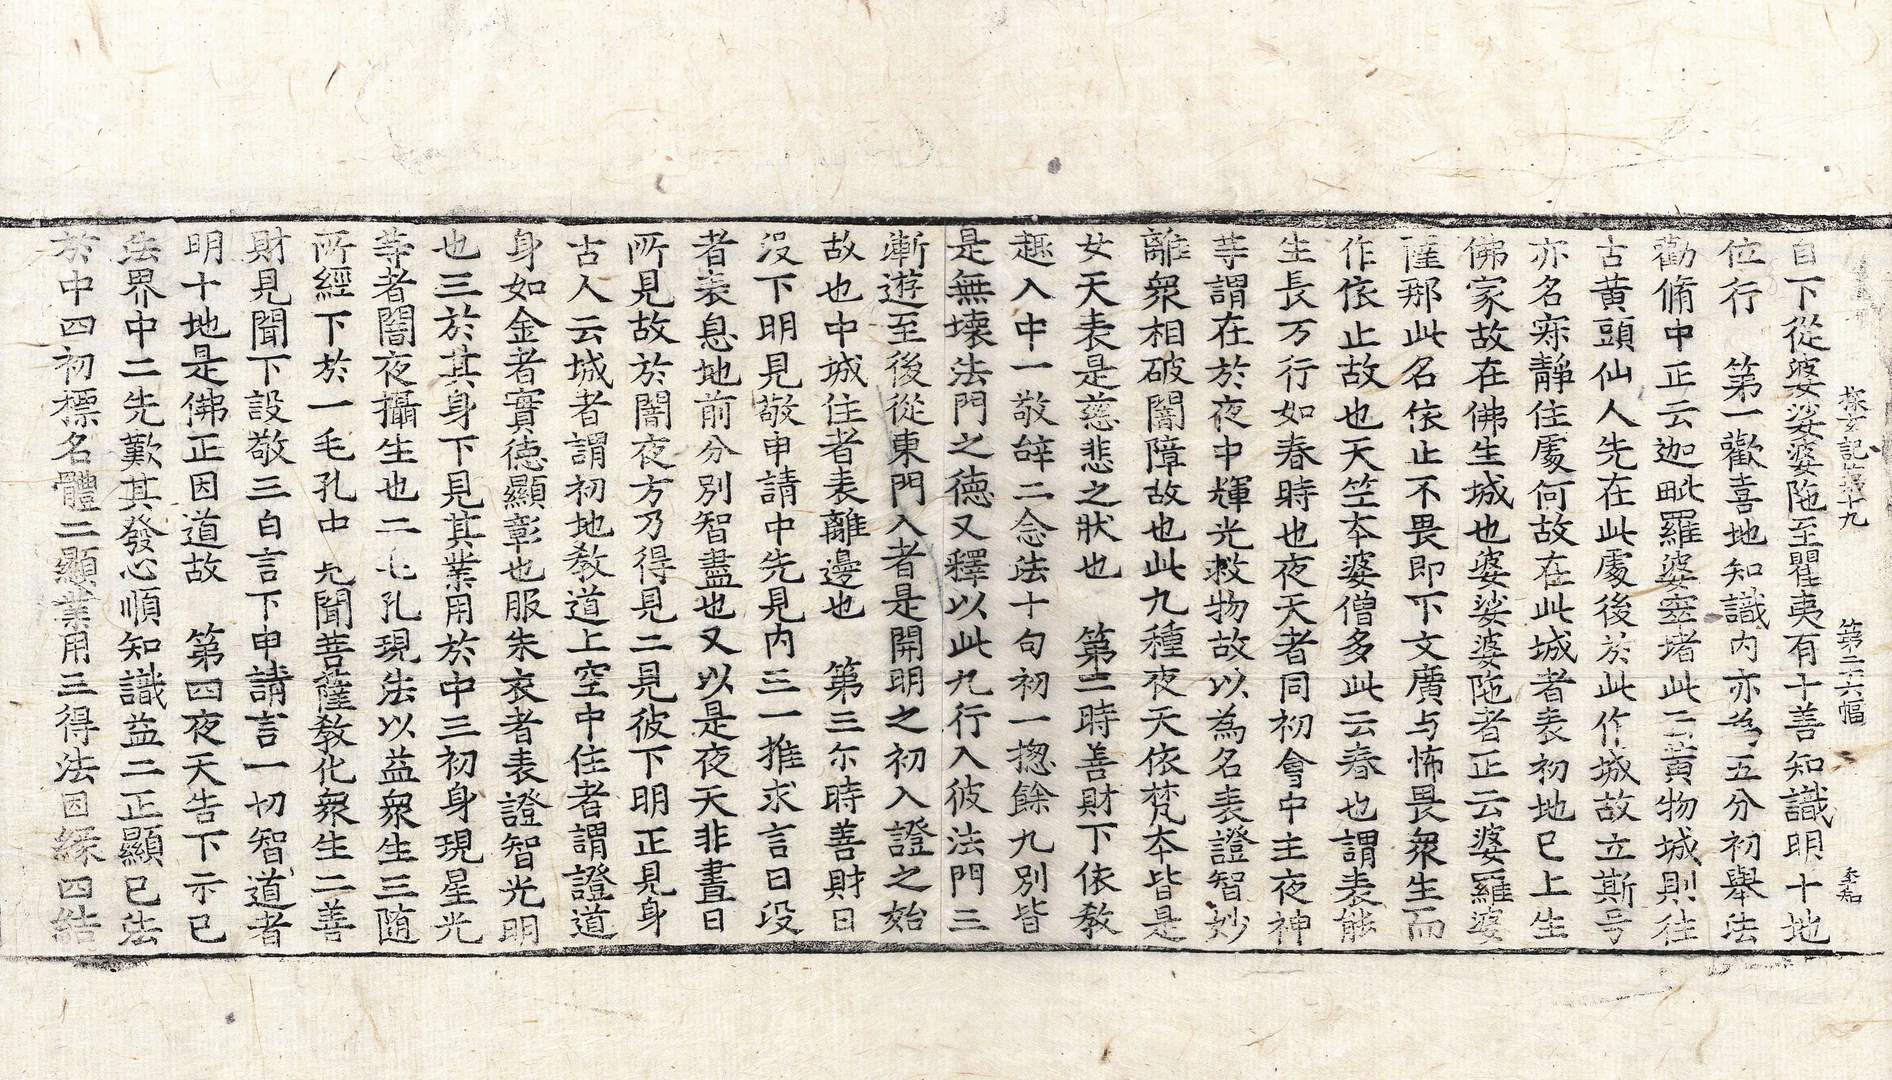 探玄記第十九　第二六幅　至知
自下從婆娑婆陁至瞿夷有十善知識明十地
位行　第一歡喜地知識内亦為五分初舉法
勸脩中正云迦毗羅婆窣堵此云黃物城則往
古黃頭仙人先在此處後於此作城故立斯号
亦名寂靜住處何故在此城者表初地已上生
佛家故在佛生城也婆娑婆陁者正云婆羅婆
薩那此名依止不畏即下文廣与怖畏衆生而
作依止故也天竺本婆僧多此云春也謂表能
生長万行如春時也夜天者同初會中主夜神
等謂在於夜中輝光救物故以為名表證智妙
離衆相破闇障故也此九種夜天依梵本皆是
女天表是慈悲之狀也　第二時善財下依教
趣入中一敬辝二念法十句初一揔餘九別皆
是無壞法門之德又釋以此九行入彼法門三
漸遊至後從東門入者是開明之初入證之始
故也中城住者表離邊也　第三尒時善財日
没下明見敬申請中先見内三一推求言日没
者表息地前分別智盡也又以是夜天非晝日
所見故於闇夜方乃得見二見彼下明正見身
古人云城者謂初地教道上空中住者謂證道
身如金者實德顯彰也服朱衣者表證智光明
也三於其身下見其業用於中三初身現星光
等者闇夜攝生也二毛孔現法以益衆生三随
所經下於一毛孔中見聞菩薩教化衆生二善
財見聞下設敬三白言下申請言一切智道者
明十地是佛正因道故　第四夜天告下示已
法界中二先歎其發心順知識益二正顯已法
於中四初摽名體二顯業用三得法因緣四結